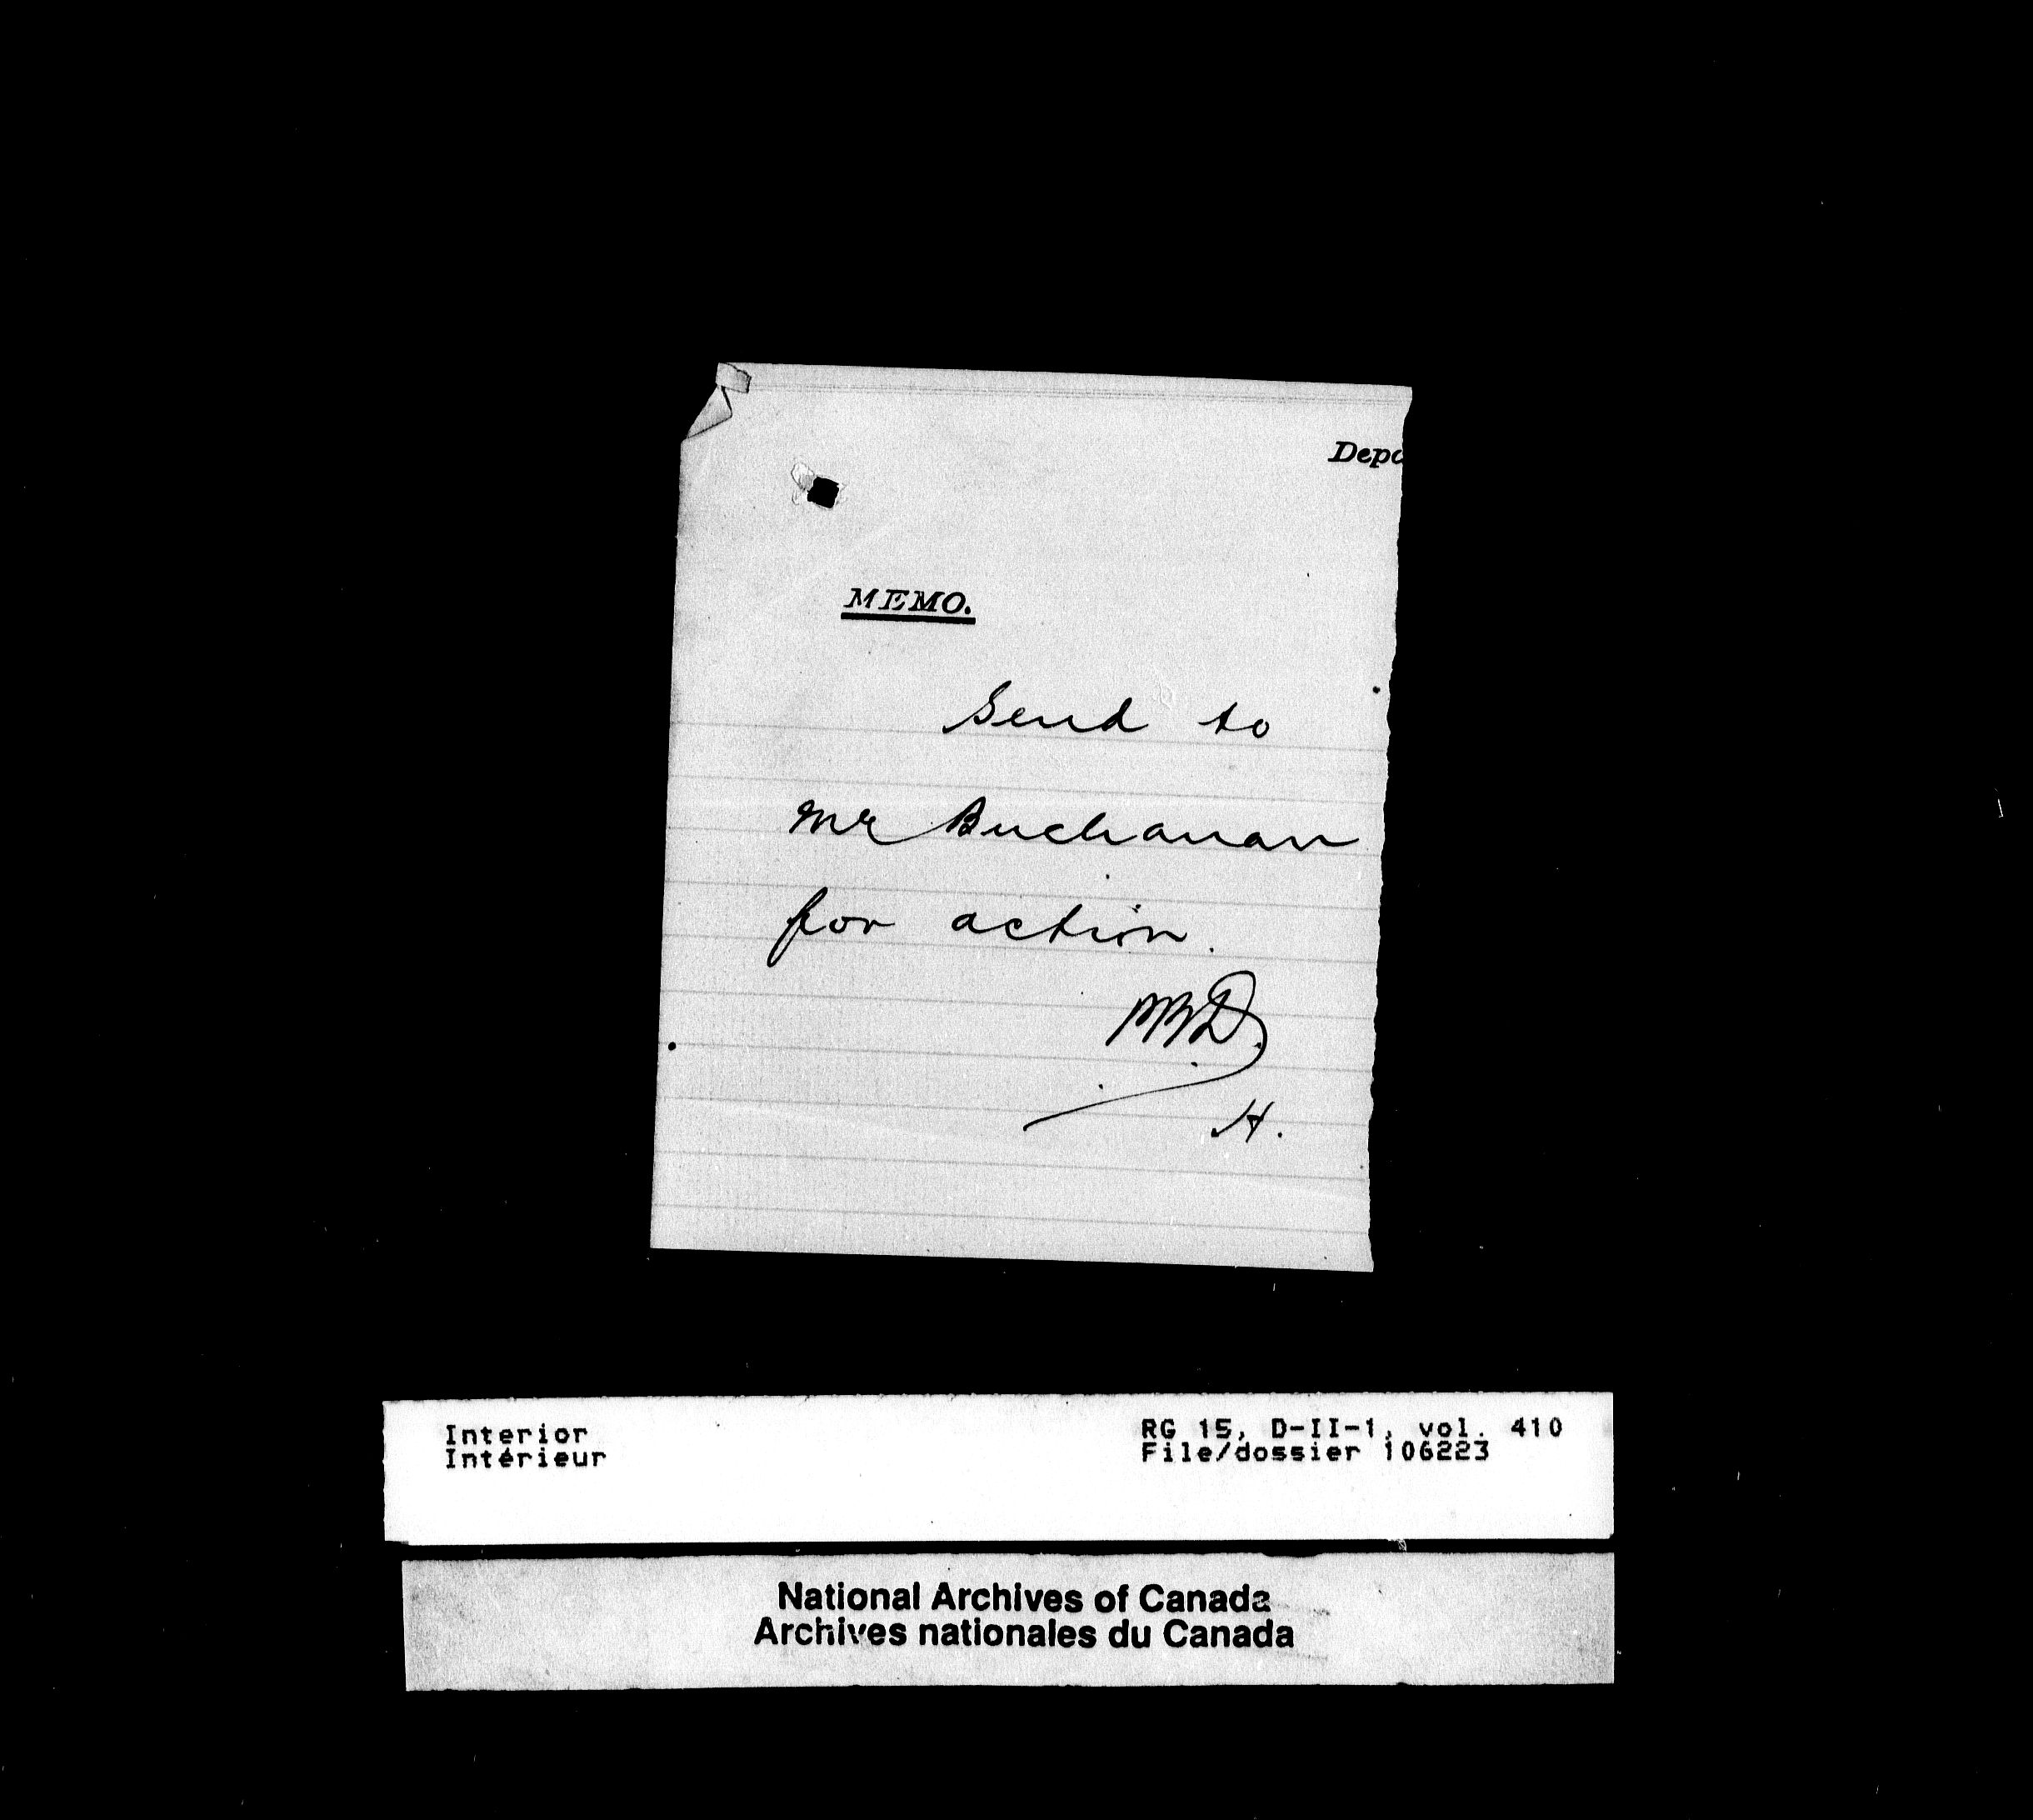 Depa
MEMO.
Send to
Mr Buchanan
for action.
H.
Interior
Intérieur
RG 15, D-II-1, vol. 410
File/dossier 106223
National Archives of Canada
Archives nationales du Canada